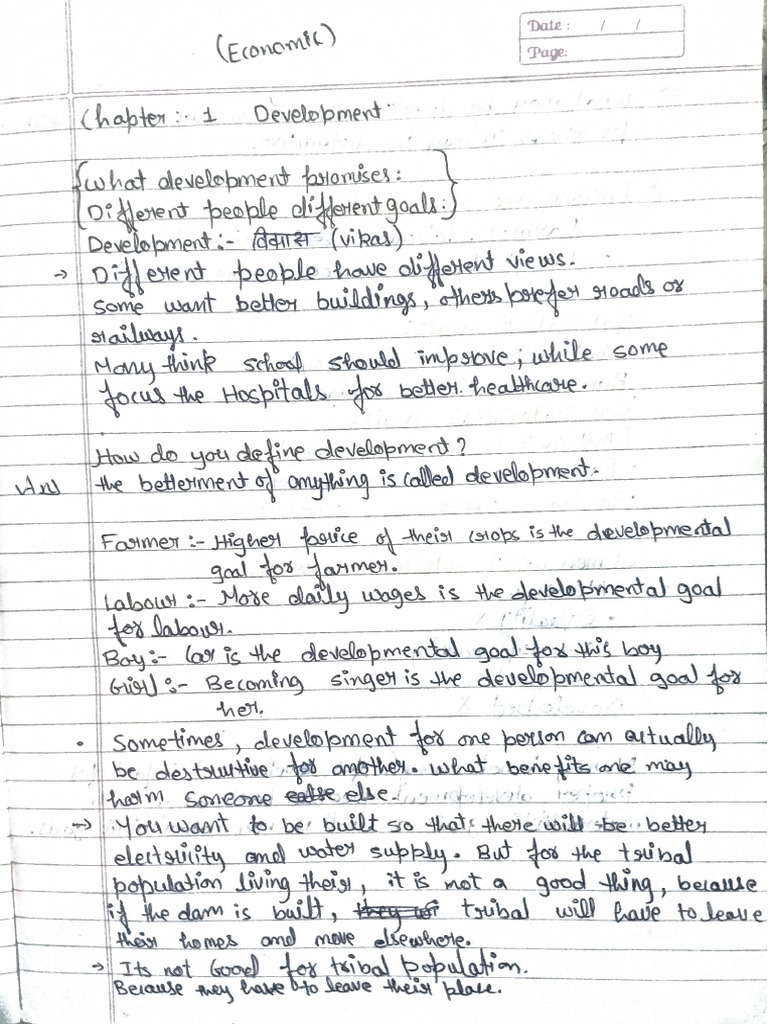 (Economic)
Date : / /
Page:
Chapter :- 1 Development
What development promises:
Different people different goals:
Development :- विकास (vikas)
→ Different people have different views.
Some want better buildings, others prefer roads or
railways.
Many think school should improve; while some
focus the Hospitals for better healthcare.
How do you define development?
Ans the betterment of anything is called development.
Farmer :- Higher price of their crops is the developmental
goal for farmer.
Labour :- More daily wages is the developmental goal
for labour.
Boy :- Car is the developmental goal for this boy
Girl :- Becoming singer is the developmental goal for
her.
• Sometimes, development for one person can actually
be destructive for another. What benefits one may
harm someone else.
→ You want to be built so that there will be better
electricity and water supply. But for the tribal
population living their, it is not a good thing, because
if the dam is built, tribal will have to leave
their homes and move elsewhere.
→ Its not Good for tribal population.
Because they have to leave their place.